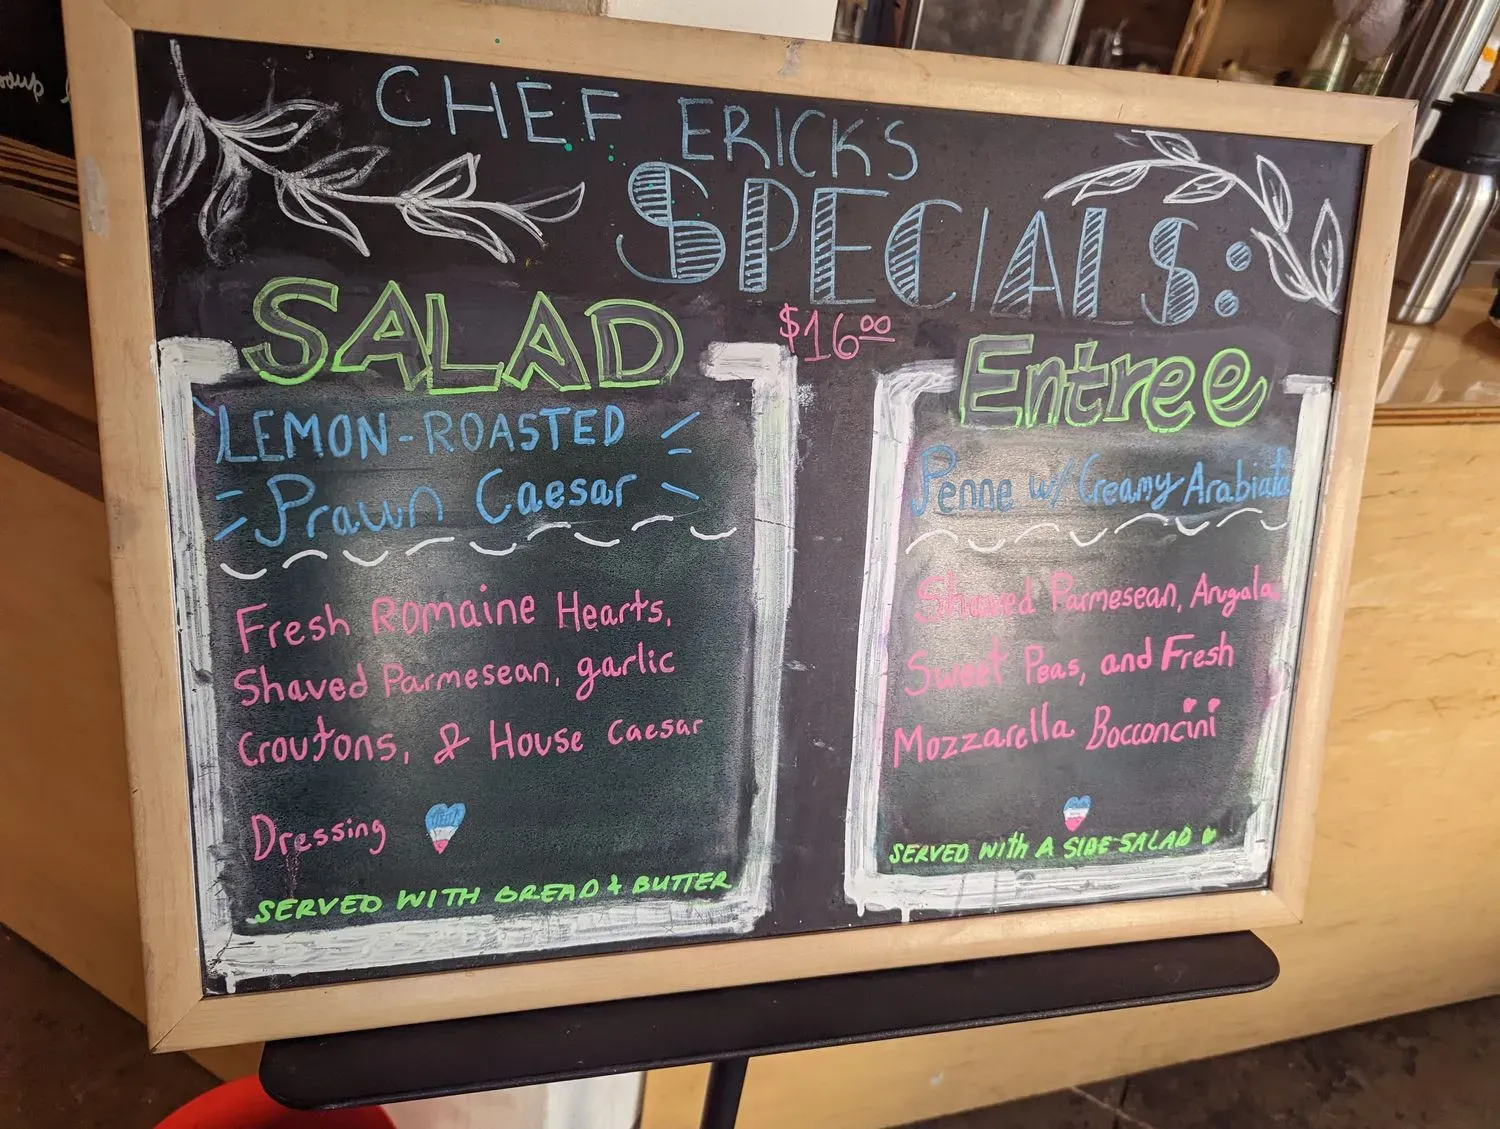 CHEF ERICKS
SPECIALS:
$16.00
SALAD
LEMON-ROASTED
Prawn Caesar
Fresh Romaine Hearts,
Shaved Parmesean, garlic
Croutons, & House Caesar
Dressing
SERVED WITH BREAD & BUTTER
Entree
Penne w/ Creamy Arabiata
Shaved Parmesean, Arugala,
Sweet Peas, and Fresh
Mozzarella Bocconcini
SERVED with A SIDE SALAD